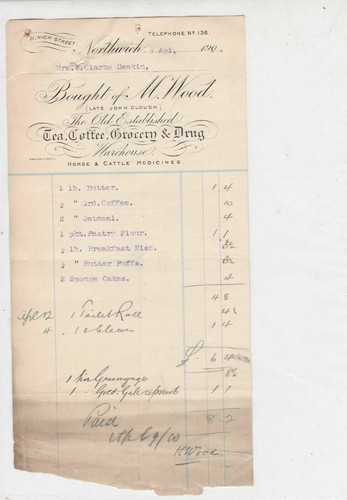 11, HIGH STREET. TELEPHONE Nº 136.
Northwich, Apl. 190
Mrs. Clarke Deakin,
Bought of M. Wood.
(LATE JOHN CLOUGH)
The Old Established
Tea, Coffee, Grocery & Drug
Warehouse
HORSE & CATTLE MEDICINES.
1 lb. Butter. 1 4
½ " Grd. Coffee. 10
2 " Oatmeal. 4
1 pkt. Pastry Flour. 1 1
½ lb. Breakfast Bisc. 3½
½ " Butter Puffs. 3½
2 Sponge Cakes. 4
4 6
Apl 2 1 Toilet Roll 4½
4 1 1 4
£ 6
1 8½
1 1 1
Paid 8 2
Apl 9/10
M Wood